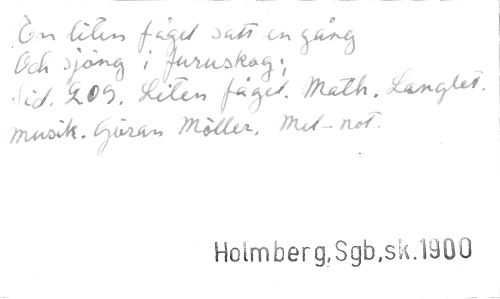 En liten fågel satt en gång
Och sjöng i furuskog;
Sid. 209. Liten fågel. Math. Langlet.
musik. Göran Möller. Mel-not.
Holmberg,Sgb,sk.1900